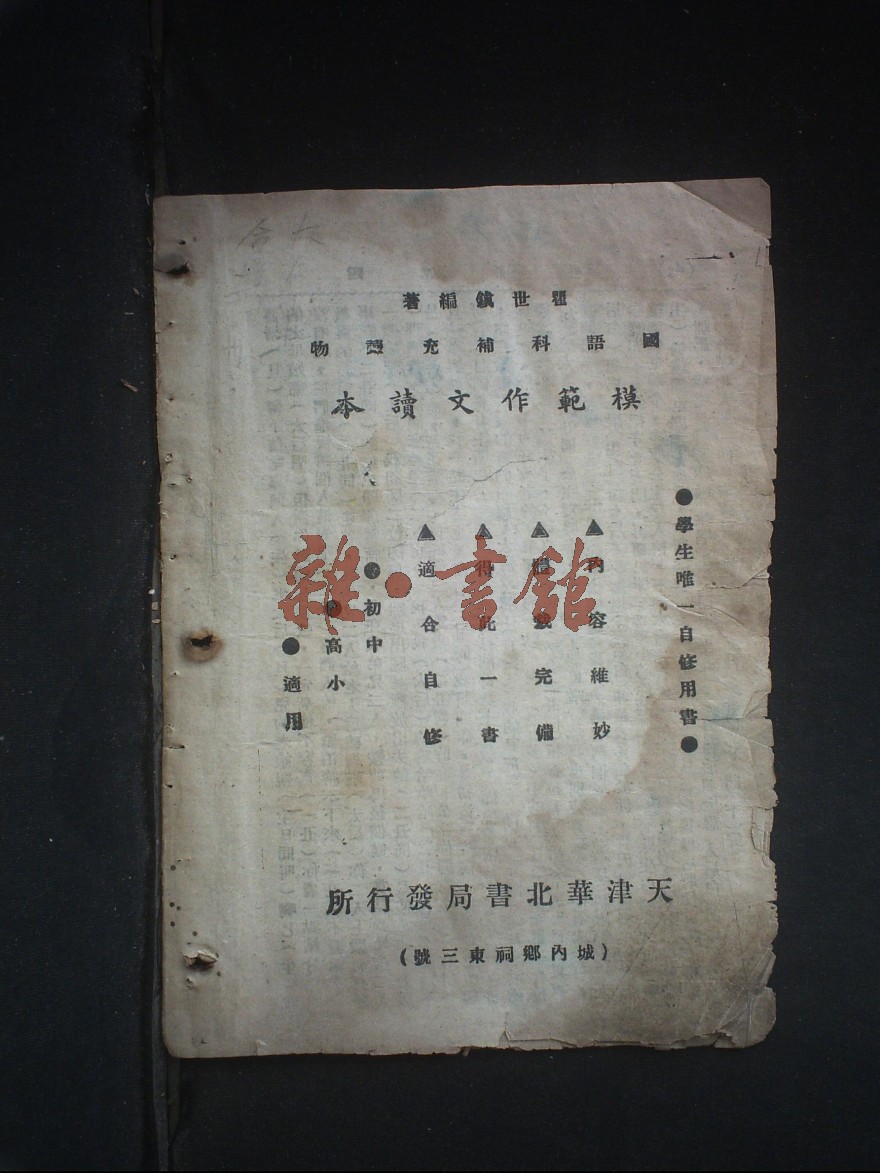 瞿世鎮編著
國語科補充讀物
模範作文讀本
●學生唯一自修用書●
▲內容維妙
▲完備
▲得此一書
▲適合自修
●初中
●高小
●適用
雜·書館
天津華北書局發行所
(城內鄉祠東三號)